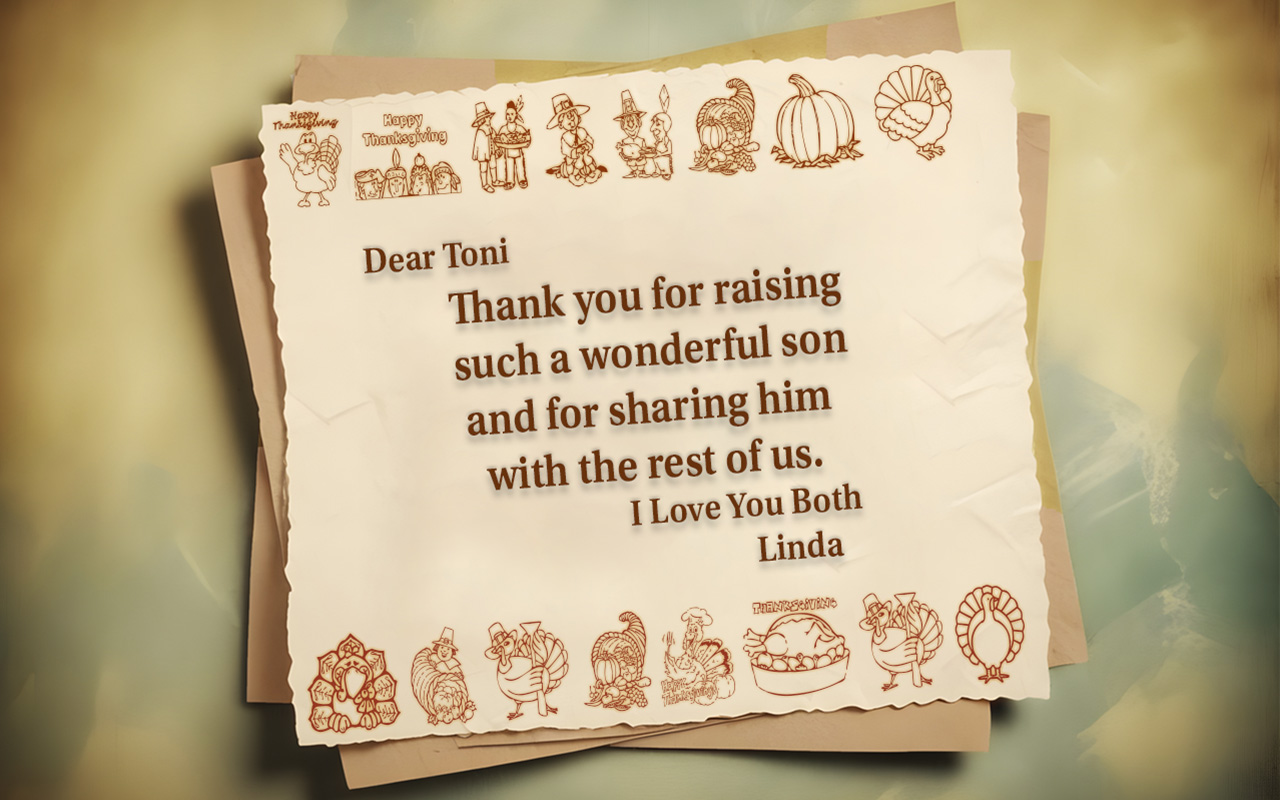 Happy
Thanksgiving
Happy
Thanksgiving
Dear Toni
Thank you for raising
such a wonderful son
and for sharing him
with the rest of us.
I Love You Both
Linda
THANKSGIVING
Happy
Thanksgiving